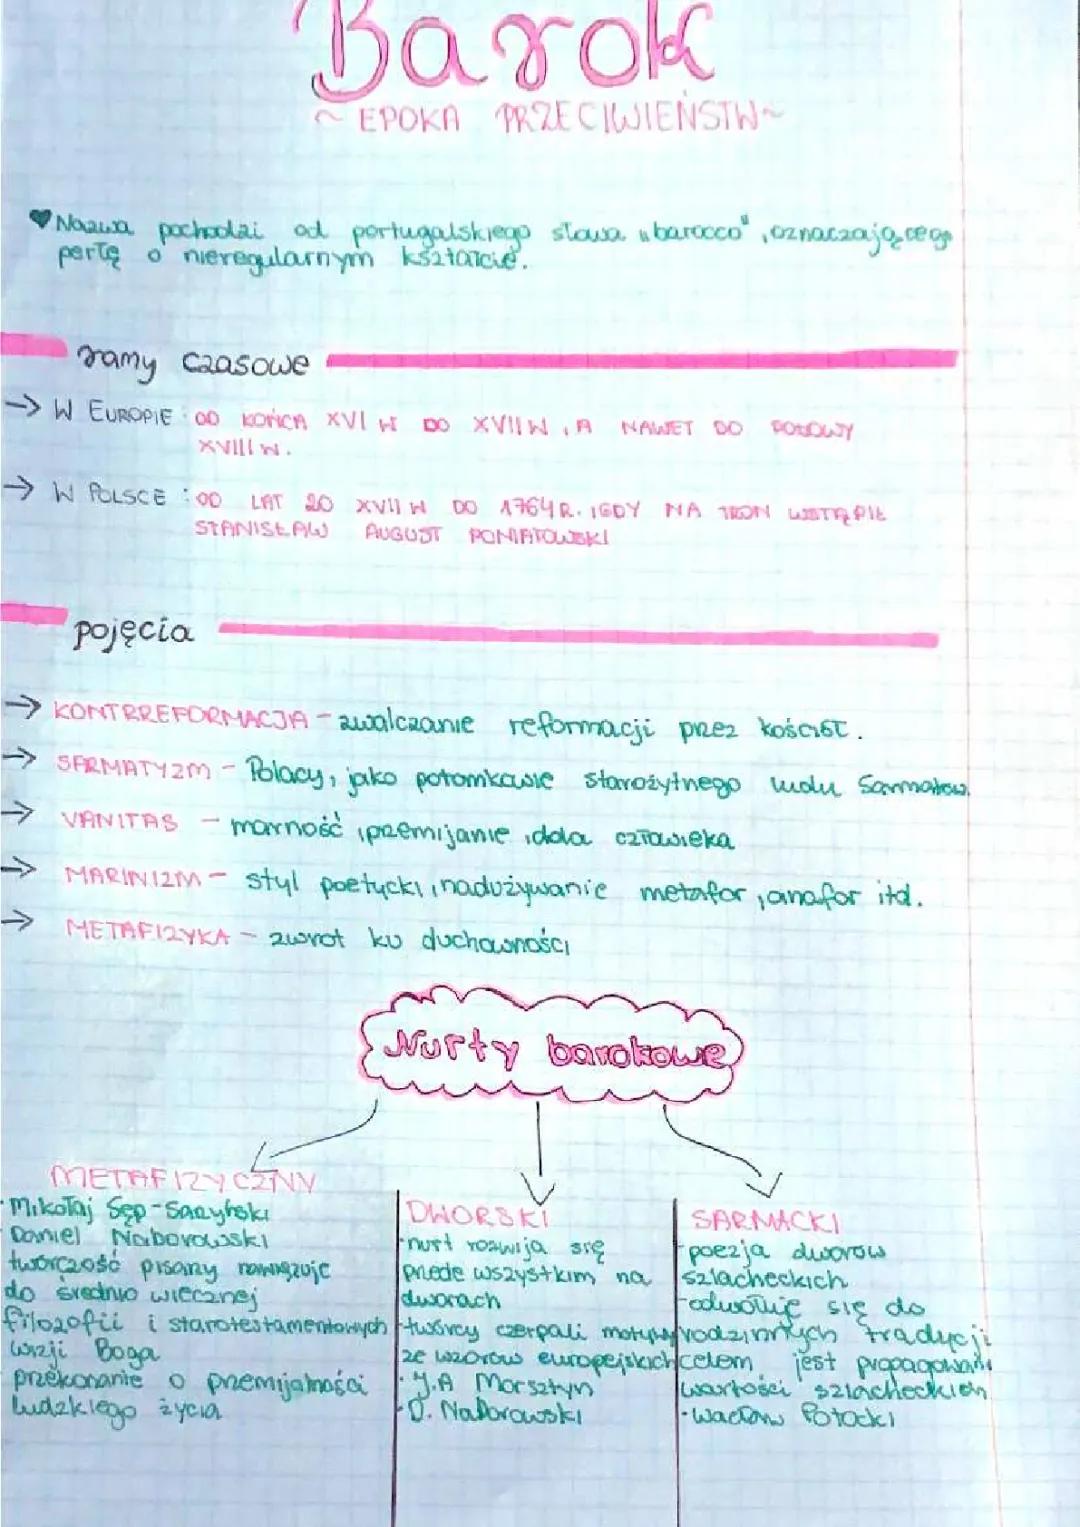 Barok
~ EPOKA PRZECIWIEŃSTW ~
Nazwa pochodzi od portugalskiego słowa „barocco”, oznaczającego
perłę o nieregularnym kształcie.
ramy czasowe
→ W EUROPIE : OD KOŃCA XVI W DO XVII W, A NAWET DO POŁOWY
XVIII W.
→ W POLSCE : OD LAT 20 XVII W DO 1764 R. GDY NA TRON WSTĄPIŁ
STANISŁAW AUGUST PONIATOWSKI
pojęcia
→ KONTRREFORMACJA - zwalczanie reformacji przez kościół.
→ SARMATYZM - Polacy, jako potomkowie starożytnego ludu Sarmatów.
→ VANITAS - marność, przemijanie, dola człowieka
→ MARINIZM - styl poetycki, nadużywanie metafor, anafor itd.
→ METAFIZYKA - zwrot ku duchowności
Nurty barokowe
METAFIZYCZNY
· Mikołaj Sęp-Szarzyński
· Daniel Naborowski
twórczość pisarzy nawiązuje
do średnio wiecznej
filozofii i starotestamentowych
wizji Boga
przekonanie o przemijalności
ludzkiego życia
DWORSKI
- nurt rozwija się
przede wszystkim na
dworach
- twórcy czerpali motywy
ze wzorów europejskich
· J.A Morsztyn
· D. Naborowski
SARMACKI
- poezja dworów
szlacheckich
- odwołuje się do
rodzinnych tradycji
celem jest propagowanie
wartości szlacheckich
· Wacław Potocki